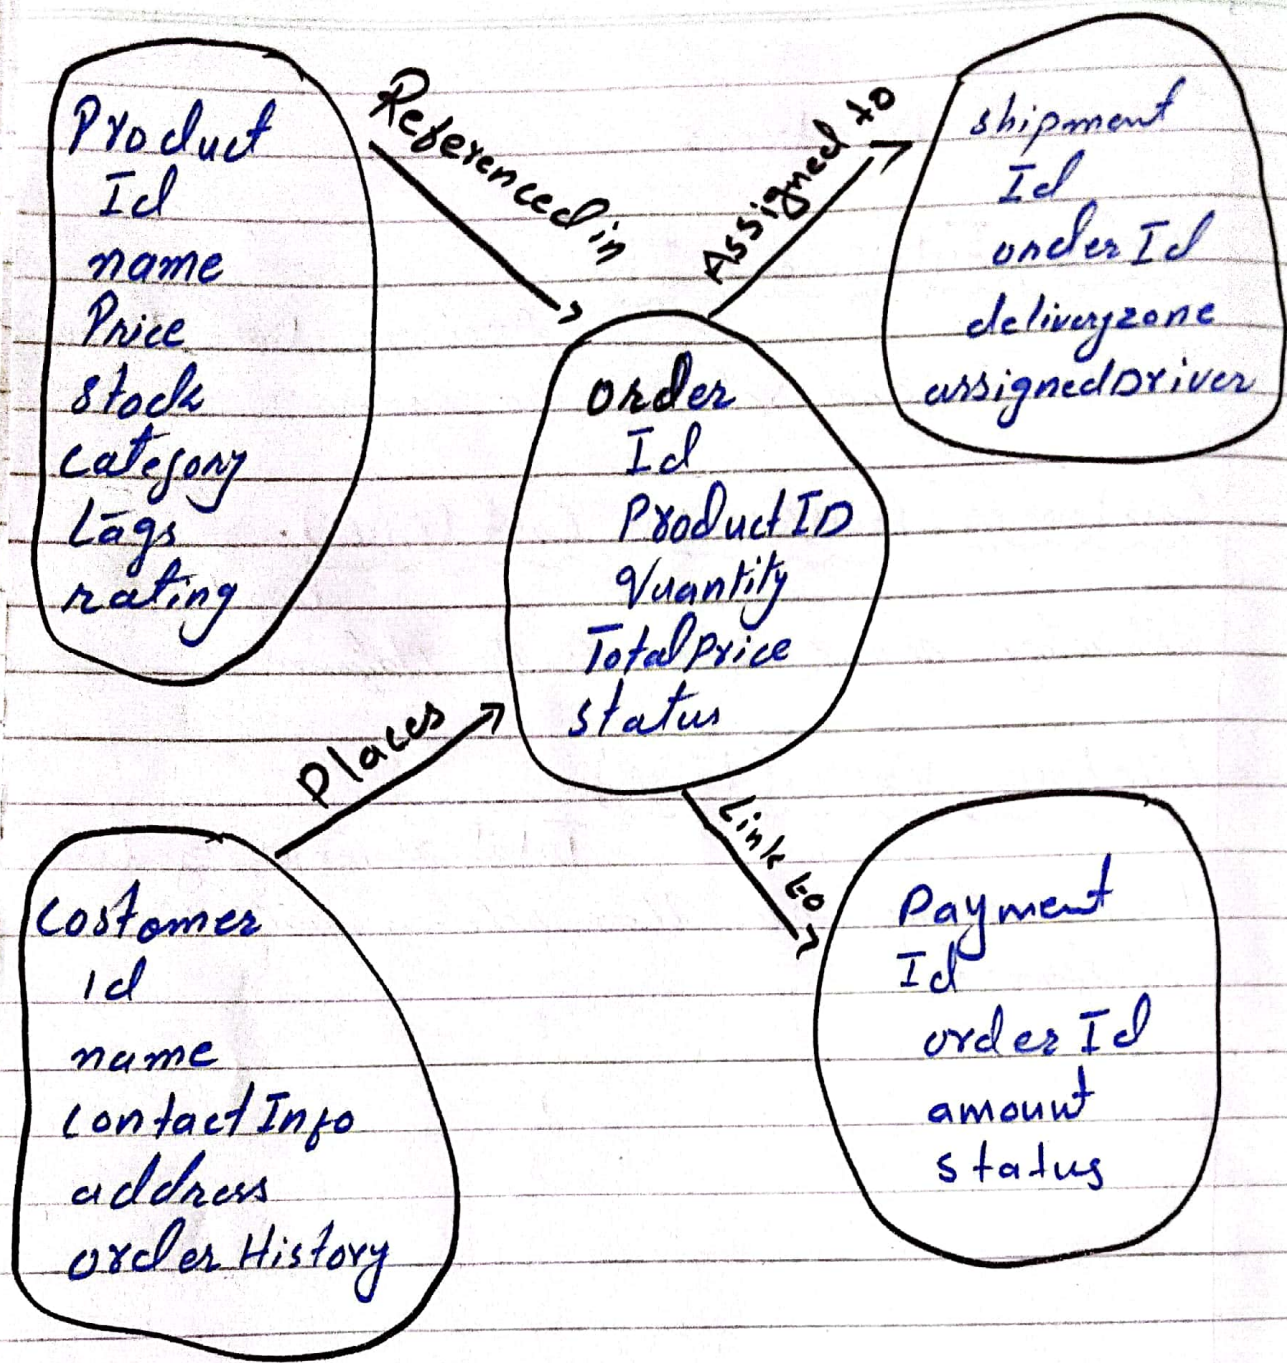 Product
Id
name
Price
Stock
Category
tags
rating
Referenced in
Assigned to
shipment
Id
orderId
deliveryzone
assignedDriver
order
Id
ProductID
Quantity
TotalPrice
status
Places
Link to
Costomer
id
name
contactInfo
address
orderHistory
Payment
Id
orderId
amount
status